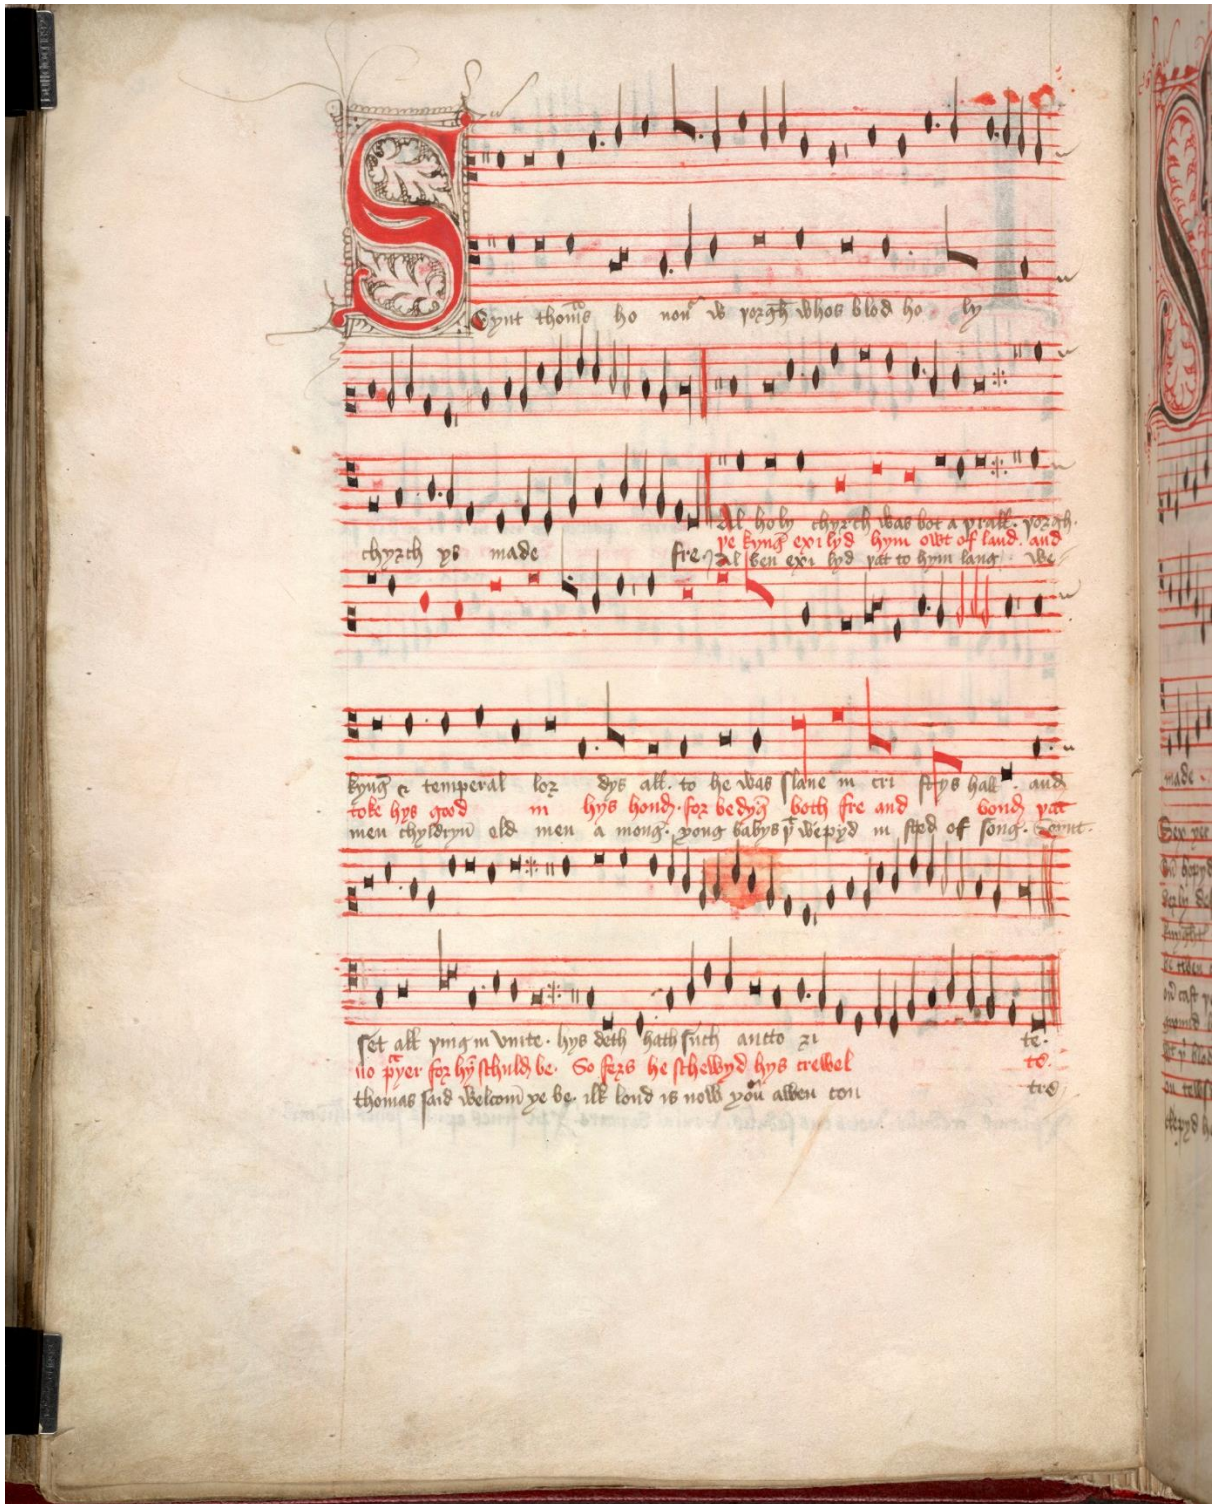 Seynt thom̄s ho nou͛ w yorgh̄ whos blod ho ly
Al holy chyrch was bot a prall. yorgh.
chyrch ys made fre.
ye kynḡ exilyd hym owt of land. and
Al ben exi lyd yat to hym lang. we
kynḡ & temperal lor dys all. to he was slane in cri stys hall. and
toke hys good in hys hond. for bedynḡ both fre and bond. yat
men chyldryn̄ old men a mong. yong babys yͣ wepyd in sted of song. Seynt.
set all ying in vnite. hys deth hath such aucto ri te.
no pͣyer for hȳ schuld be. So fers he schewyd hys crewel te.
thomas said welcom̄ ye be. ilk lond is now you͛ awen con tre
made